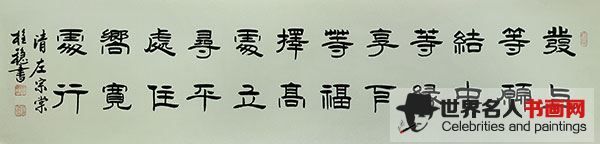 發上
等願
結中
等緣
享下
等福
擇高
處立
尋平
處住
嚮寬
處行
清左宗棠
書
世界名人书画院
Celebrities and paintings